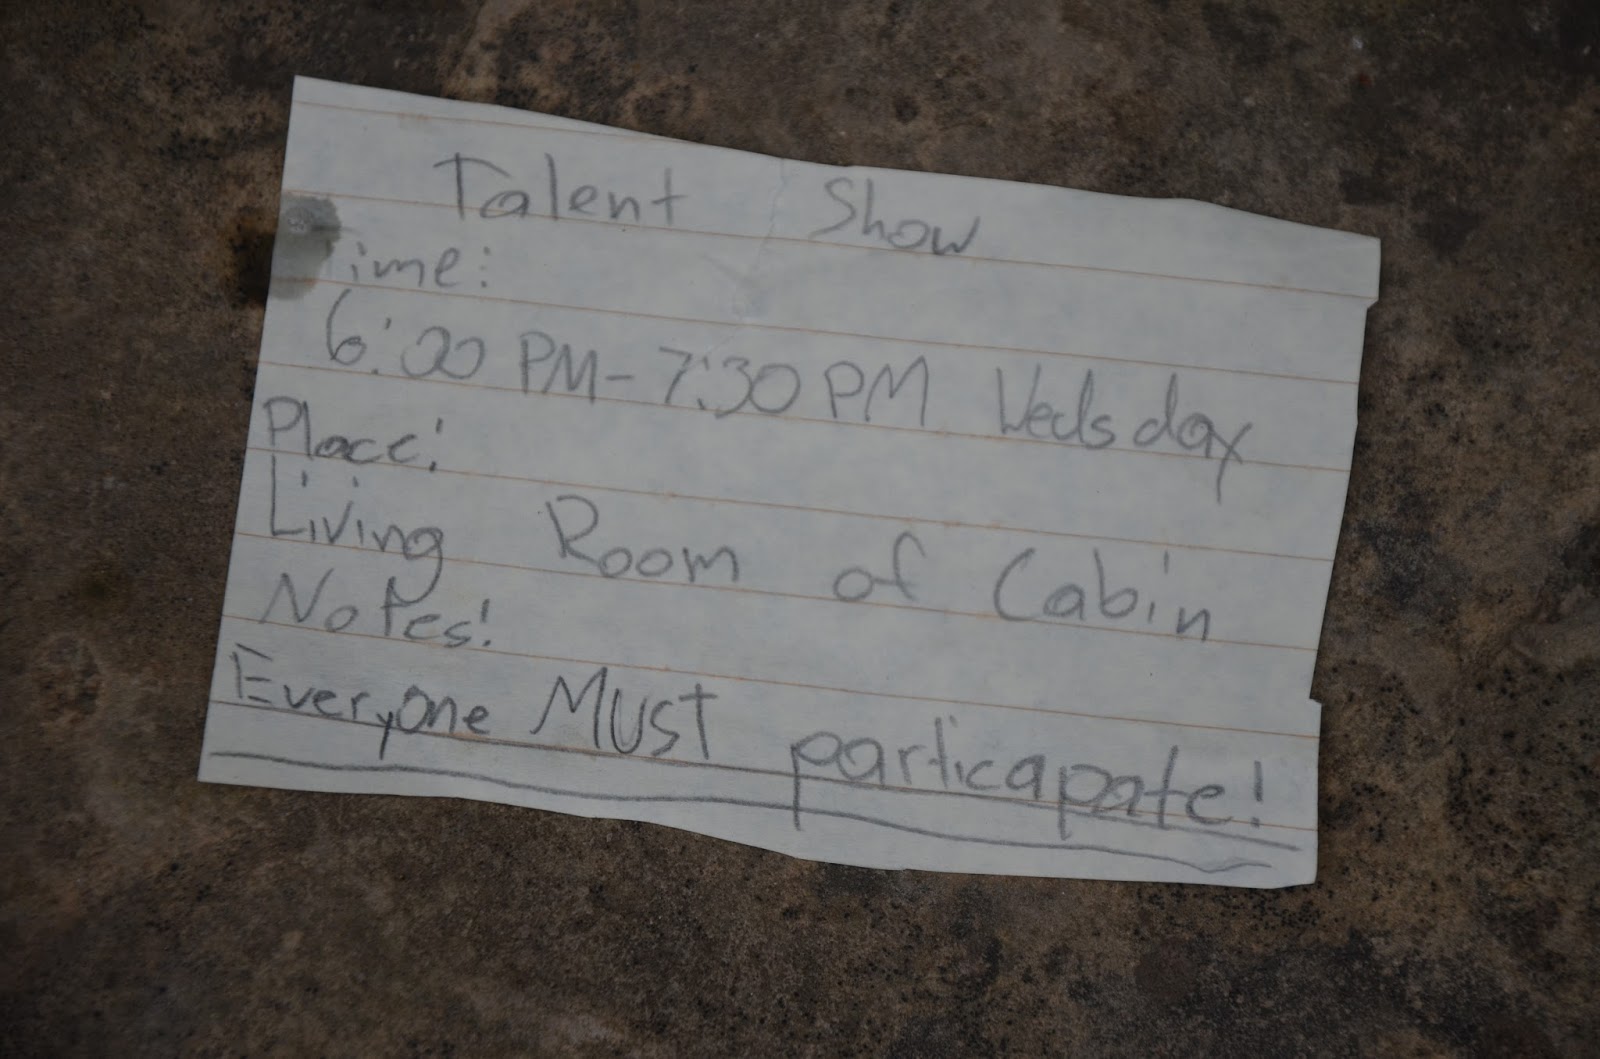 Talent Show
Time:
6:00 PM-7:30 PM Wedsday
Place:
Living Room of Cabin
Notes:
Everyone MUST particapate!